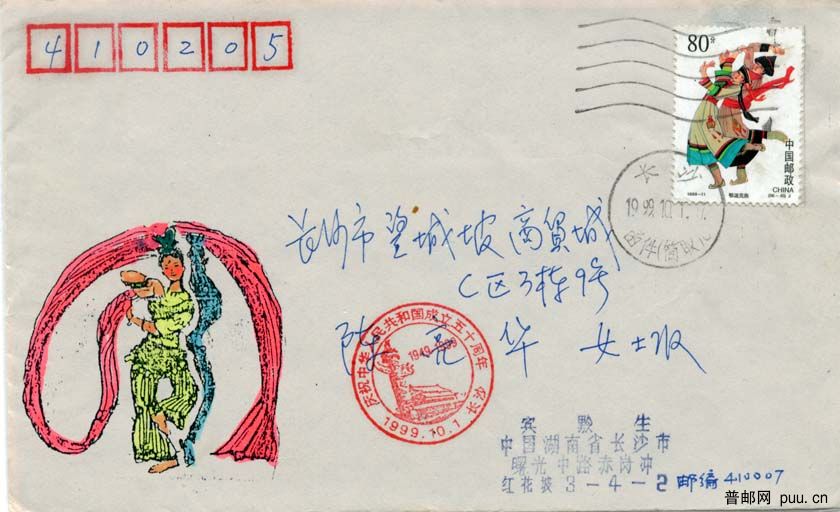 410205
80分
中国邮政
CHINA
1999-11
长沙
1999.10.1.
长沙市望城坡商贸城
C区3栋9号
陈亮华 女士收
庆祝中华人民共和国成立五十周年
1949-1999
长沙
1999.10.1
宾黔生
中国湖南省长沙市
曙光中路赤岗冲
红花坡3-4-2 邮编410007
普邮网 puu.cn